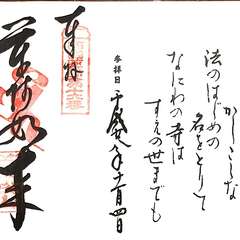 かしこしな
法のはじめの
名をとりて
なにわの寺は
すえの世までも
参拝日 平成八年十一月四日
奉拝
如来